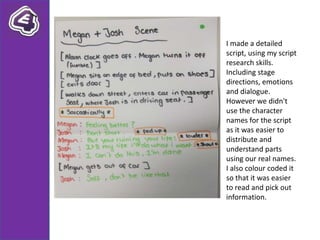 Megan + Josh Scene
[Alarm clock goes off. Megan turns it off
(fumble)]
[Megan sits on edge of bed, puts on shoes]
[exits door]
[walks down street, enters car in passenger
seat, where Josh is in driving seat.]
* Sarcastically *
Megan: Feeling better?
Josh: Don't start * fed up *
Megan: But your ruining your life! * louder *
Josh: It's my life I do what I want * shout *
Megan: I can't do this, I'm done
[Megan gets out of car]
Josh: Sass, don't be like that
I made a detailed
script, using my script
research skills.
Including stage
directions, emotions
and dialogue.
However we didn't
use the character
names for the script
as it was easier to
distribute and
understand parts
using our real names.
I also colour coded it
so that it was easier
to read and pick out
information.